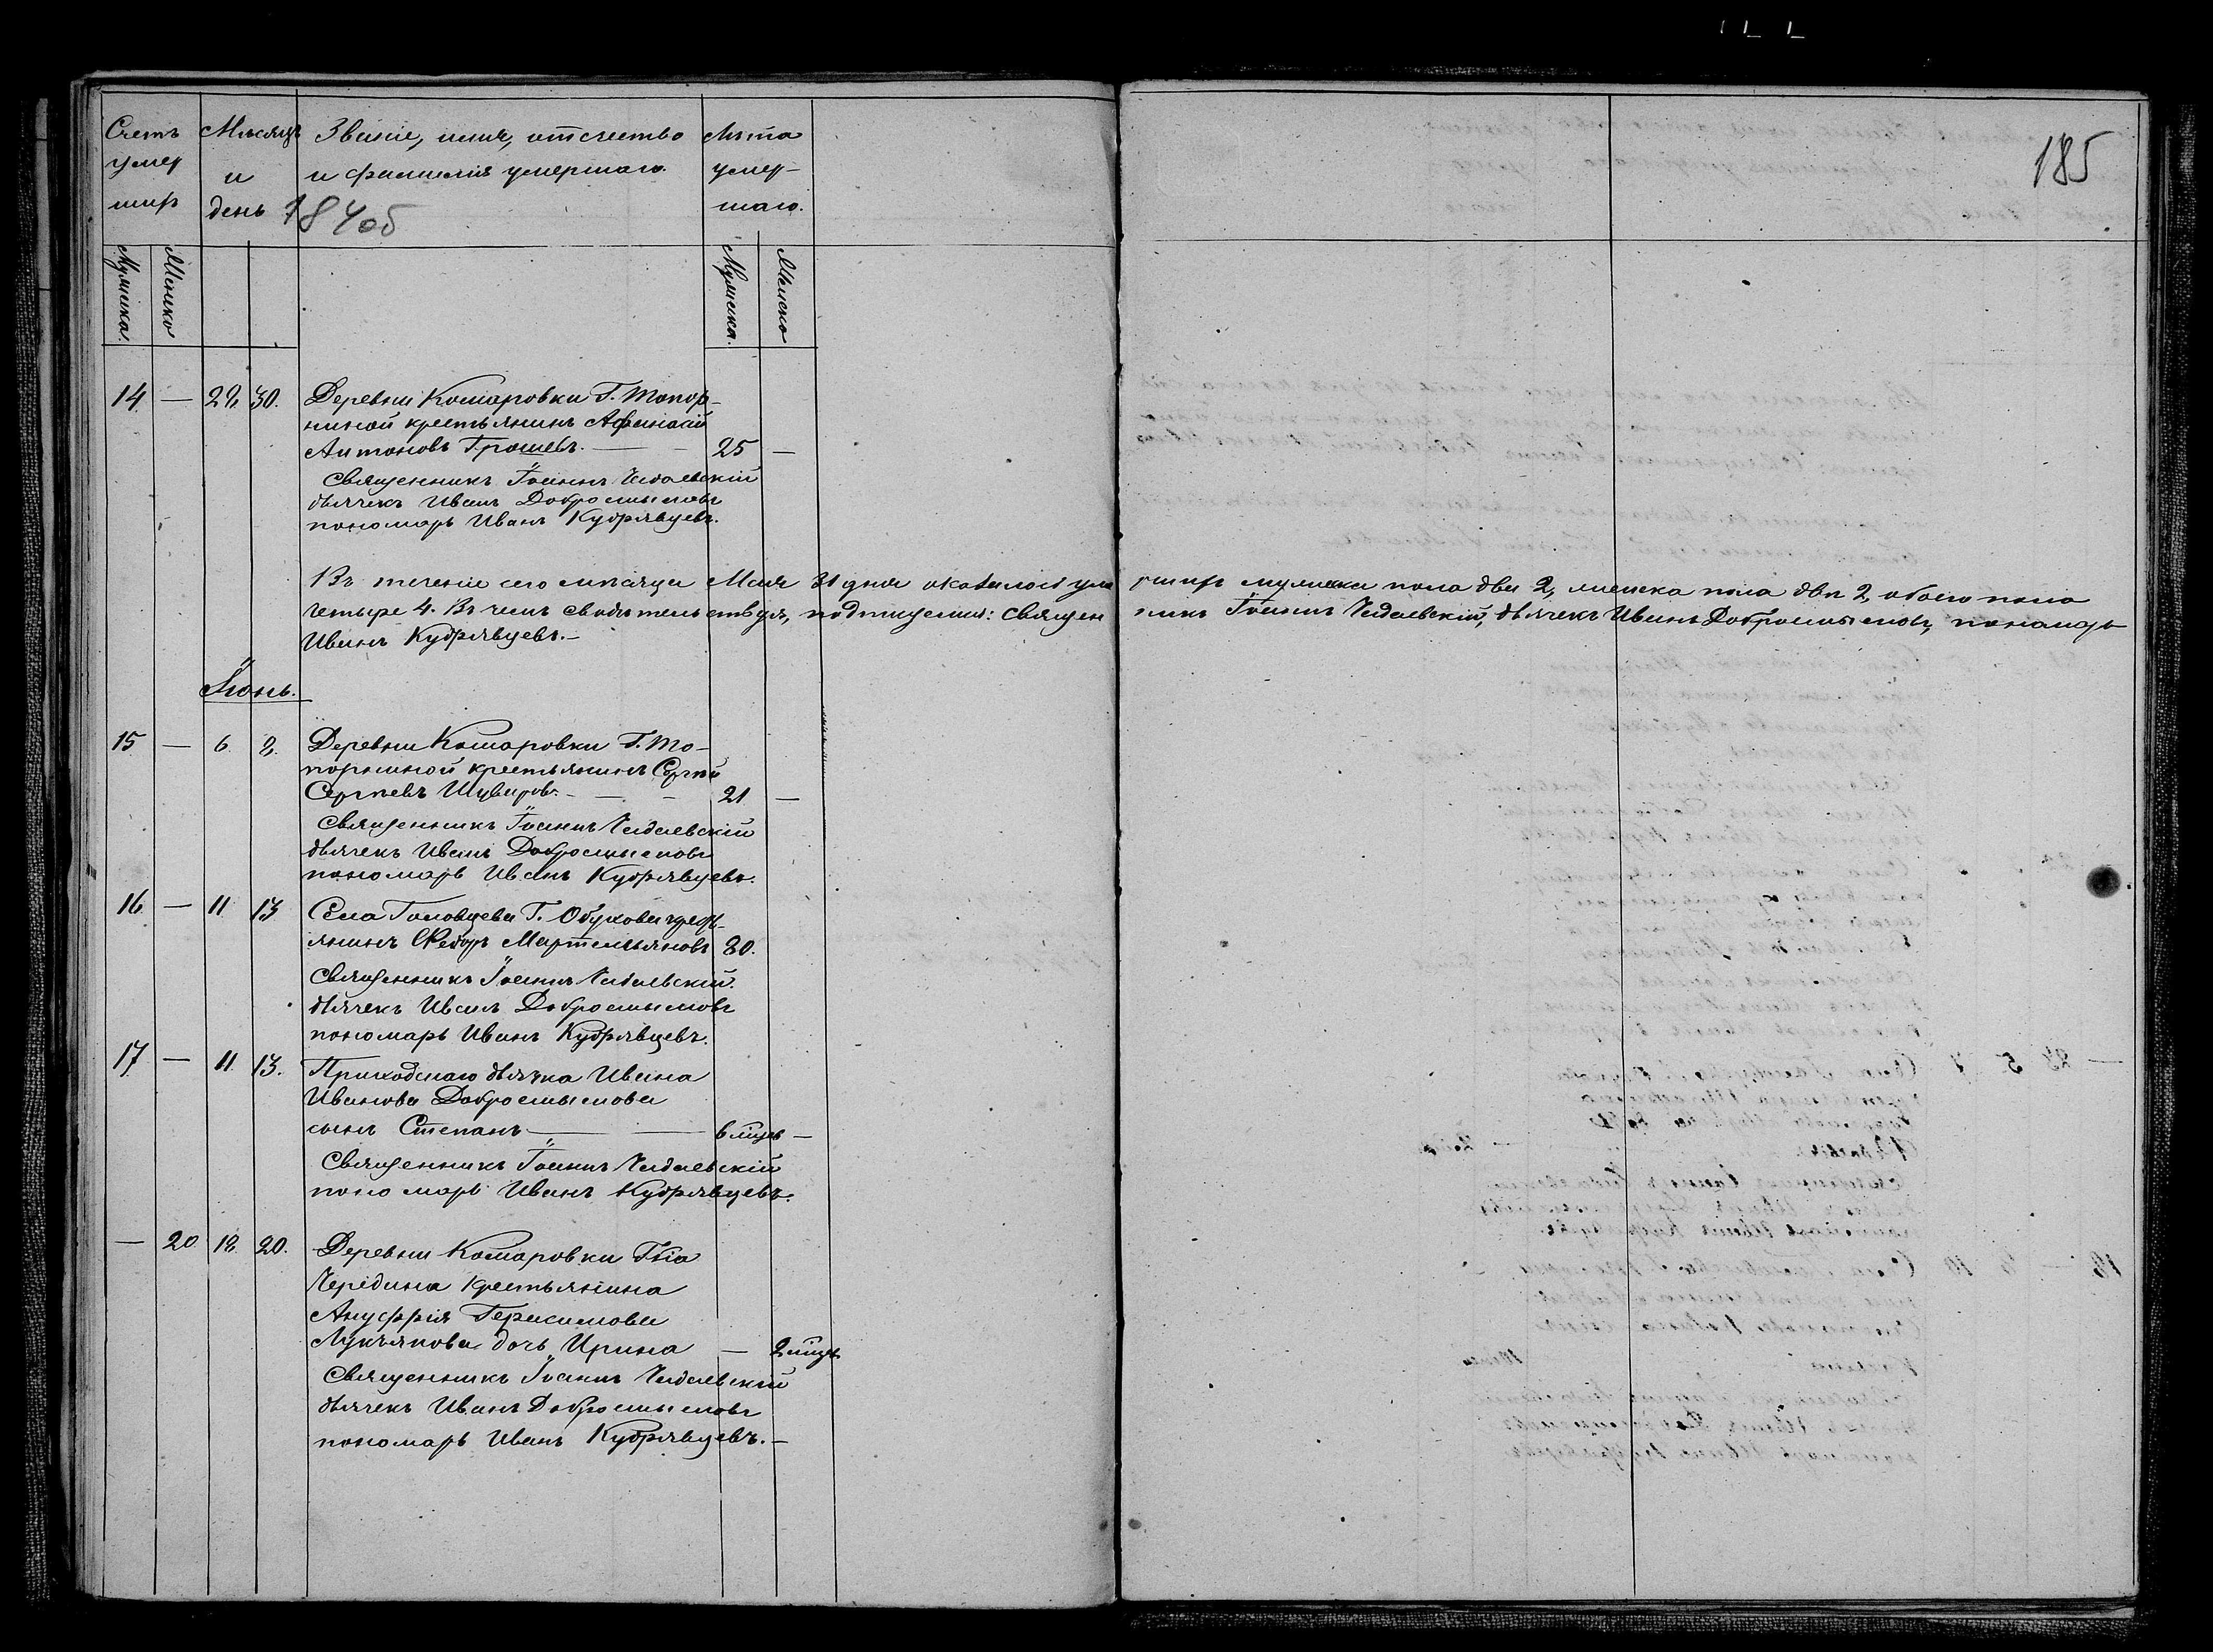 185
Счетъ умер шихъ
Мѣсяцъ и день
Званіе, имя, отчество
и фамилія умершаго.
Лѣта умер- шаго.
Мужеска. Женско
Мужеска. Женско
14 — 28 30. Деревни Комаровки Г. Топор-
ниной крестьянинъ Афанасій
Антоновъ Грошевъ. — 25 —
Священникъ Іоаннъ Чадаевскій
дьячекъ Иванъ Добросмысловъ
пономарь Иванъ Кудрявцевъ.
Въ теченіе сего мѣсяца Маія 31 дня оказалось уме ршихъ мужеска пола два 2, женска пола двѣ 2, обоего пола
четыре 4. Въ чемъ свидѣтельствуя, подпишемся: Священ никъ Іоаннъ Чадаевскій, дьячекъ Иванъ Добросмысловъ, пономарь
Иванъ Кудрявцевъ.—
Іюнь.
15 — 6. 8. Деревни Комаровки Г. То-
порниной крестьянинъ Сергѣй
Сергѣевъ Шуваровъ. — — 21 —
Священникъ Іоаннъ Чадаевскій
дьячекъ Иванъ Добросмысловъ
пономарь Иванъ Кудрявцевъ.
16 — 11 13 Села Головцева Г. Обухова крест-
янинъ Ѳедоръ Мартемьяновъ 80.
Священникъ Іоаннъ Чадаевскій.
дьячекъ Иванъ Добросмысловъ
пономарь Иванъ Кудрявцевъ.
17 — 11 13. Приходскаго дьячка Ивана
Иванова Добросмыслова
сынъ Степанъ — — 6 мцевъ —
Священникъ Іоаннъ Чадаевскій
пономарь Иванъ Кудрявцевъ.
— 20 18. 20. Деревни Комаровки Гжа
Чередина крестьянина
Ануффрія Герасимова
Лукьянова дочь Ирина — 2 мцъ
Священникъ Іоаннъ Чадаевскій
дьячекъ Иванъ Добросмысловъ
пономарь Иванъ Кудрявцевъ.—